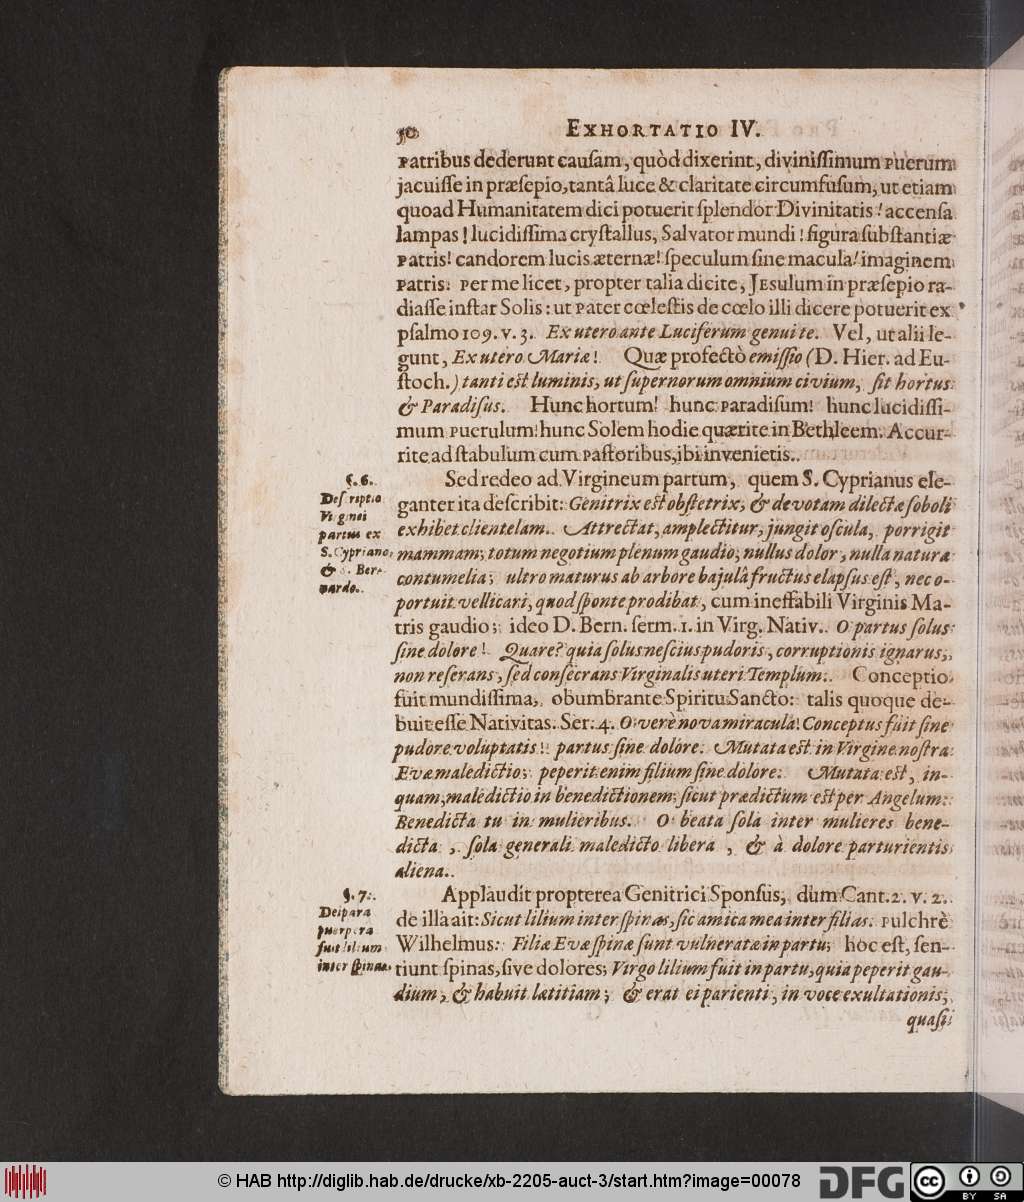 50
EXHORTATIO IV.
Patribus dederunt causam, quòd dixerint, divinissimum Puerum
jacuisse in præsepio, tantâ luce & claritate circumfusum, ut etiam
quoad Humanitatem dici potuerit splendor Divinitatis! accensa
lampas! lucidissima crystallus, Salvator mundi! figura substantiæ
Patris! candorem lucis æternæ! speculum sine macula! imaginem
Patris: Per me licet, propter talia dicite, JEsulum in præsepio ra-
diasse instar Solis: ut Pater cœlestis de cœlo illi dicere potuerit ex
psalmo 109. v. 3. Ex utero ante Luciferum genui te. Vel, ut alii le-
gunt, Ex utero Mariæ! Quæ profectò emissio (D. Hier. ad Eu-
stoch.) tanti est luminis, ut supernorum omnium civium, sit hortus
& Paradisus. Hunc hortum! hunc Paradisum! hunc lucidissi-
mum Puerulum! hunc Solem hodie quærite in Bethleem. Accur-
rite ad stabulum cum Pastoribus, ibi invenietis.
§. 6.
Descriptio
Virginei
partus ex
S. Cypriano,
& S. Ber-
nardo.
Sed redeo ad Virgineum partum, quem S. Cyprianus ele-
ganter ita describit: Genitrix est obstetrix, & devotam dilectæ soboli
exhibet clientelam. Attrectat, amplectitur, jungit oscula, porrigit
mammam; totum negotium plenum gaudio; nullus dolor, nulla naturæ
contumelia; ultro maturus ab arbore bajulâ fructus elapsus est, nec o-
portuit vellicari, quod sponte prodibat, cum ineffabili Virginis Ma-
tris gaudio; ideo D. Bern. serm. 1. in Virg. Nativ. O partus solus
sine dolore! Quare? quia solus nescius pudoris, corruptionis ignarus,
non reserans, sed consecrans Virginalis uteri Templum. Conceptio
fuit mundissima, obumbrante Spiritu Sancto: talis quoque de-
buit esse Nativitas. Ser. 4. O verè nova miracula! Conceptus fuit sine
pudore voluptatis! partus sine dolore. Mutata est in Virgine nostra
Evæ maledictio; peperit enim filium sine dolore. Mutata est, in-
quam, maledictio in benedictionem; sicut prædictum est per Angelum:
Benedicta tu in mulieribus. O beata sola inter mulieres bene-
dicta, sola generali maledicto libera, & à dolore parturientis
aliena.
§. 7.
Deipara
puerpera
fuit lilium
inter spinas.
Applaudit propterea Genitrici Sponsus, dum Cant. 2. v. 2.
de illa ait: Sicut lilium inter spinas, sic amica mea inter filias. Pulchrè
Wilhelmus: Filiæ Evæ spinæ sunt vulneratæ in partu; hoc est, sen-
tiunt spinas, sive dolores; Virgo lilium fuit in partu, quia peperit gau-
dium, & habuit lætitiam; & erat ei parienti, in voce exultationis,
quasi
© HAB http://diglib.hab.de/drucke/xb-2205-auct-3/start.htm?image=00078
DFG
cc BY SA